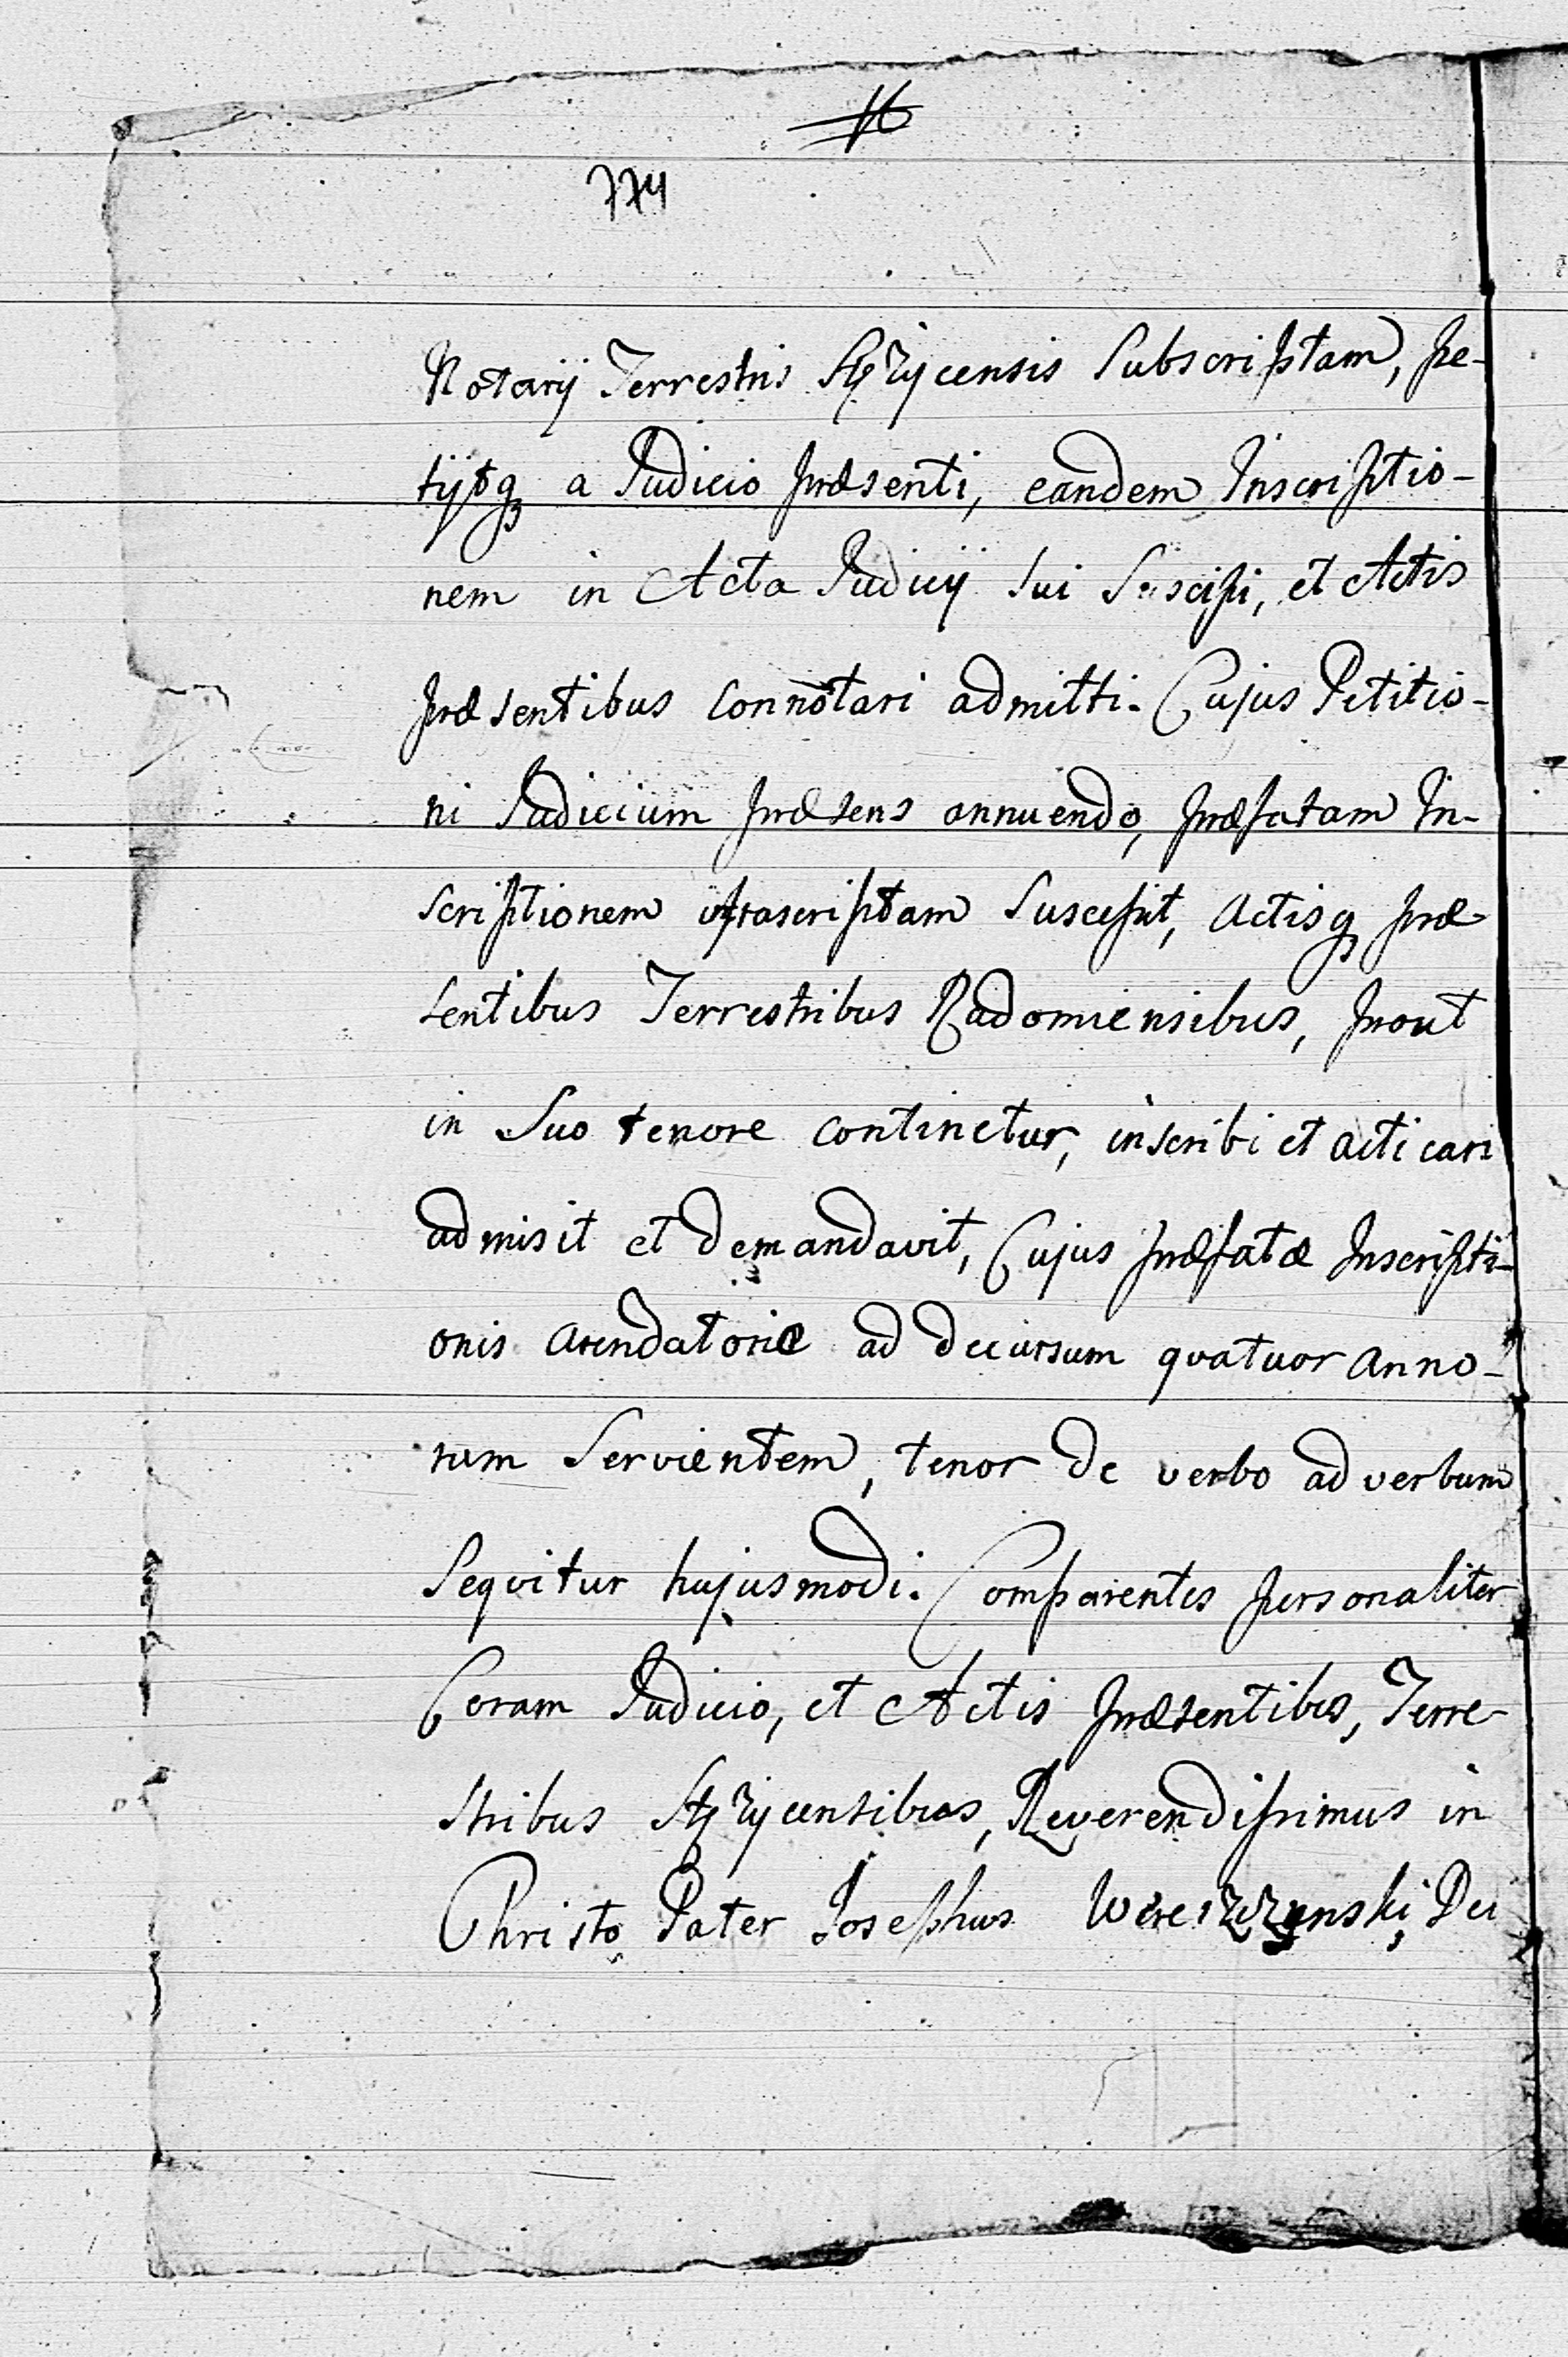 774
Notarij Terrestris Stężycensis Subscriptam, pe-
tijtq́ a Judicio præsenti, eandem Inscriptio-
nem in Acta Judicij sui Suscipi, et Actis
præsentibus connotari admitti. Cujus Petitio-
ni Judicium præsens annuendo, præfatam In-
scriptionem infrascriptam Suscepit, Actisq́ præ
sentibus Terrestribus Radomiensibus, prout
in Suo tenore continetur, inscribi et acticari
admisit et demandavit, Cujus præfatæ Inscripti-
onis arendatoriæ ad decursum quatuor anno-
rum Servientem, tenor de verbo ad verbum
Sequitur hujusmodi. Comparentes personaliter
Coram Judicio, et Actis præsentibus, Terre-
stribus Stężycensibus, Reverendissimus in
Christo Pater Josephus Dei